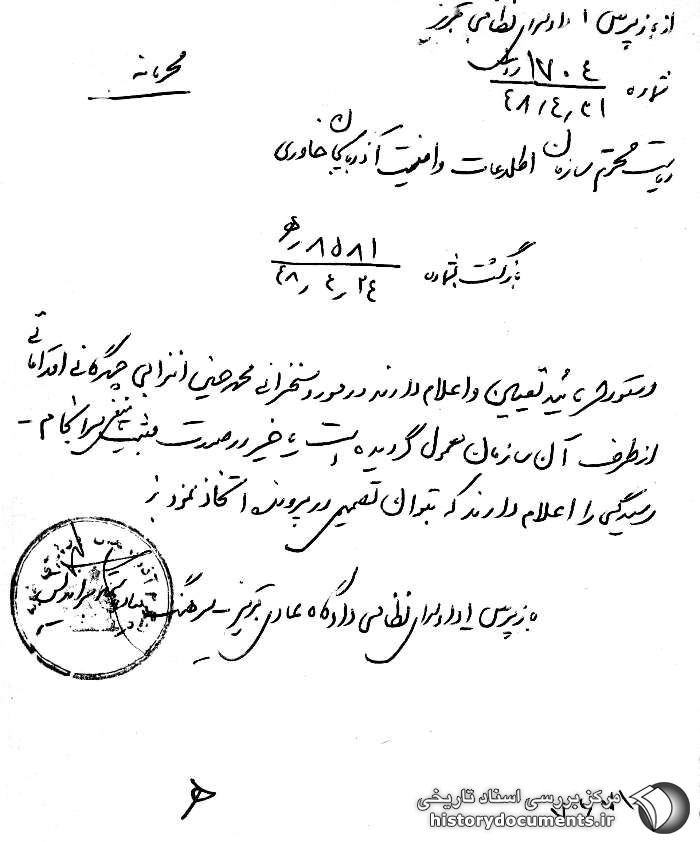 از بازپرس ۱ دادسرای نظامی تبریز
محرمانه
شماره ۱۷۰۴
۴۸/۴/۳۱
ریاست محترم سازمان اطلاعات و امنیت آذربایجان خاوری
بازگشت بشماره ۸۵۸۱/ﻫ
۴۸/۴/۲۴
دستور فرمائید تعیین و اعلام دارند در مورد سخنرانی محمد حسین انزابی چهرگانی اقداماتی
از طرف آن سازمان معمول گردیده است یا خیر در صورت مثبت سرانجام
رسیدگی را اعلام دارند که بتوان تصمیمی در پرونده اتخاذ نمود
بازپرس ۱ دادسرای نظامی دادگاه عادی تبریز - سرهنگ
ﻫ
مرکز بررسی اسناد تاریخی
historydocuments.ir